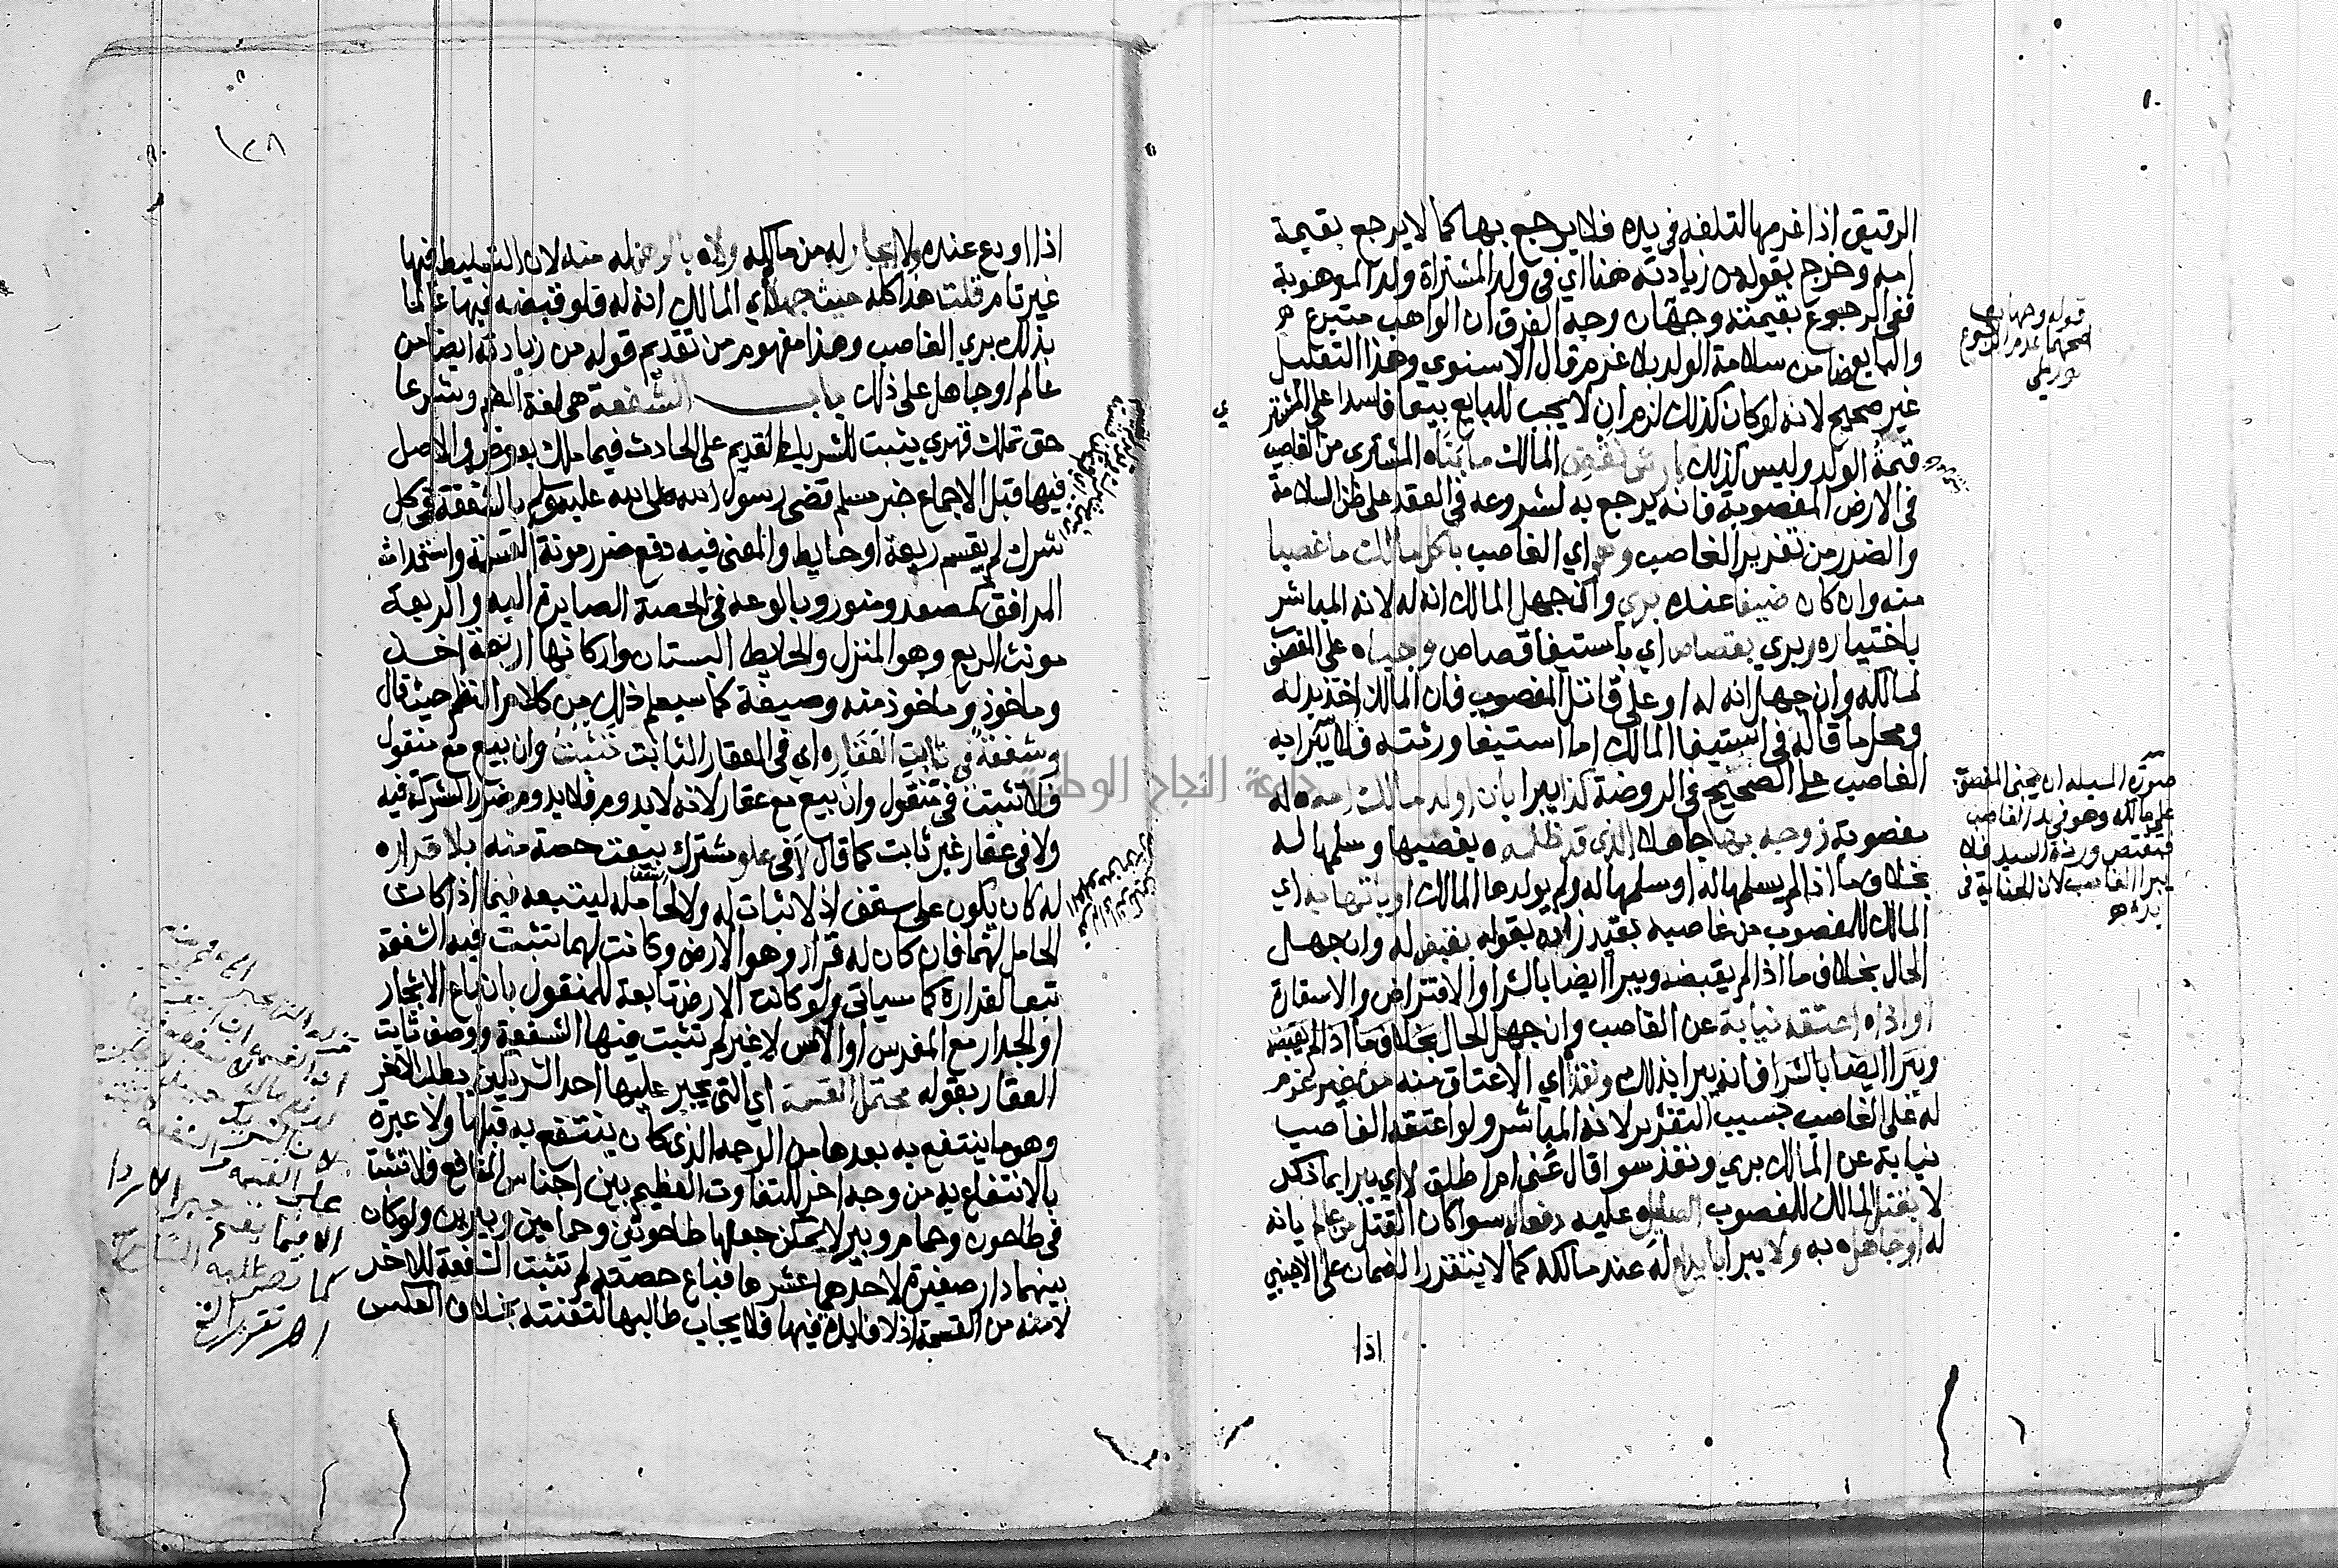 الرقيق اذا غرمها لتلفه في يده فلا يرجع بها كما لا يرجع بقيمة
امه وخرج بقوله من زيادته هنا اي في ولد المشتراة ولد الموهوبة
ففي الرجوع بقيمته وجهان وجه الفرق ان الواهب متبرع
والبايع ضامن سلامة الولد بلا غرم قال الاسنوي وهذا التعليل
غير صحيح لانه لو كان كذلك لزم ان لا يجب للبايع بيعا فاسدا على المشتر
ي
قيمة الولد وليس كذلك ارش نقض المالك ما بناه المشتري من الغاصب
في الارض المغصوبة فانه يرجع به لشروعه في العقد على ظن السلامة
والضرر من تغرير الغاصب وهو اي الغاصب باكل مالك ما غصبا
منه وان كان ضيفا عنده بري وان جهل المالك انه له لانه المباشر
باختياره وبري بقصاص اي باستيفا قصاص وجباه على المغصو
لمالكه وان جهل انه له او على قاتل المغصوب فان المالك اخذ بدله
ومحل ما قاله في استيفا المالك اما استيفا ورثته فلا يبرا به
الغاصب على الصحيح في الروضة كذا يبرا بان اولد مالك امه له
مغصوبة زوجه بها جاهلا الذي قد ظلمه بغصبها وسلمها له
بخلاف ما اذا لم يسلمها له او سلمها له ولم يولدها المالك او باتهابه اي
المالك للمغصوب من غاصبه بقيد زاده بقوله بقبض له وان جهل
الحال بخلاف ما اذا لم يقبضه ويبرا ايضا بالشرا والاقتراض والاستعارة
او اذا اعتقه نيابة عن الغاصب وان جهل الحال بخلاف ما اذا لم يقبضه
ويبرا ايضا بالشرا فانه يبرا بذلك ونفذ اي الاعتاق منه من غير غرم
له على الغاصب بسبب التغرير لانه المباشر ولو اعتقه الغاصب
نيابة عن المالك بري ونفذ سوا قال عني ام اطلق لا اي يبرا بما ذكر
لا بقتل المالك للمغصوب الصايل عليه دفعا سوا كان القتل من عالم بانه
له او جاهل به ولا يبرا بايداع له عند مالكه كما لا يتقرر الضمان على الاجنبي
اذا
قوله وجهان
اصحهما عدم الرجوع
صورة المسيله ان يجني المغصوب
على مالكه وهو في يد الغاصب
فيقتص ورثة السيد فلا
يبرا الغاصب لان الجناية في
يده
١٢٨
اذا اودع عنده ولا ايجار له من مالكه ولا بالرهن له منه لان التسليط فيها
غير تام قلت هذا كله حيث جهلا اي المالك انه له فلو قبضه فيها عالما
بذلك بري الغاصب وهذا مفهوم من تقديم قوله من زيادته ايضا من
عالم او جاهل على ذلك باب الشفعة هي لغة الضم وشرعا
حق تملك قهري يثبت للشريك القديم على الحادث فيما ملك بعوض والاصل
فيها قبل الاجماع خبر مسلم قضى رسول الله صلى الله عليه وسلم بالشفعة في كل
شرك لم يقسم ربعة او حايط والمعنى فيه دفع ضرر مونة القسمة واستحداث
المرافق كمصعد ومنور وبالوعه في الحصة الصايرة اليه والربعة
مونث الربع وهو المنزل والحايط البستان واركانها اربعة اخذ
وماخوذ وماخوذ منه وصيغة كما سيعلم ذلك من كلام الناظم حيث قال
وشفعة في ثابت العقاره اي في العقار الثابت تثبت وان بيع مع منقول
فلا تثبت في منقول وان بيع مع عقار لانه لا يدوم فلا يدوم ضرر الشركة فيه
ولا في عقار غير ثابت كما قال لا في علو مشترك بيعت حصة منه بلا قراره
له كان يكون على سقف اذ لا ثبات له ولا لحامله ليتبعه فيما اذا كانت
الحامل لهما فان كان له قرار وهو الارض وكانت لهما تثبت فيه الشفعة
تبعا لقراره كما سياتي ولو كانت الارض تابعة للمنقول بان باع الاشجار
او الجدار مع المغرس او الاس لا غير لم تثبت فيها الشفعة ووصف ثابت
العقار بقوله محتمل القسمة اي التي يجبر عليها احد الشريكين بطلب الاخر
وهو ما ينتفع به بعدها من الوجه الذي كان ينتفع به قبلها ولا عبرة
بالانتفاع به من وجه اخر للتفاوت العظيم بين اجناس المنافع فلا تثبت
في طاحون وحمام وبير لا يمكن جعلها طاحونين وحمامين وبيرين ولو كان
بينهما دار صغيرة لاحدهما عشرها فباع حصته لم تثبت الشفعة للاخر
لامنه من القسمة اذ لا فايدة فيها فلا يجاب طالبها لتعنته بخلاف العكس